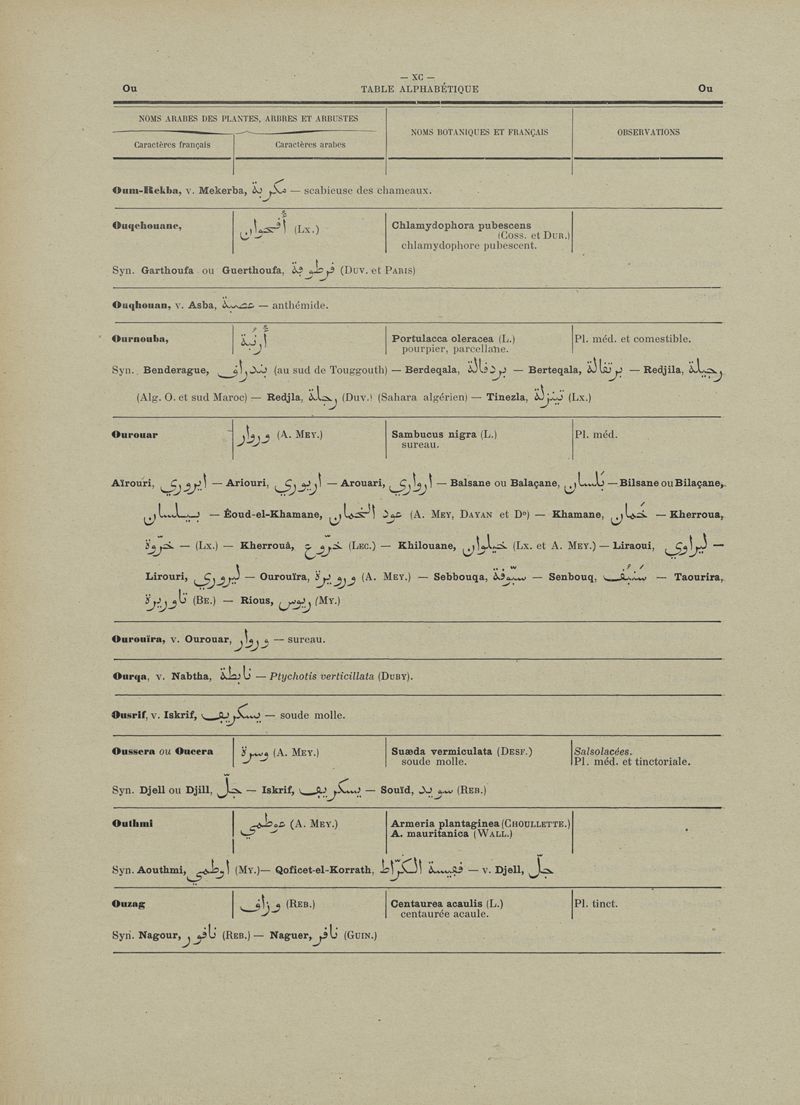 — XC —
Ou TABLE ALPHABÉTIQUE Ou
NOMS ARABES DES PLANTES, ARBRES ET ARBUSTES
NOMS BOTANIQUES ET FRANÇAIS
OBSERVATIONS
Caractères français
Caractères arabes
Oum-Rekba, v. Mekerba, مكربة — scabieuse des chameaux.
Ouqehouane, أقحوان (LX.) Chlamydophora pubescens
(Coss. et DUR.)
chlamydophore pubescent.
Syn. Garthoufa ou Guerthoufa, قرطوفة (DUV. et PARIS)
Ouqhouan, v. Asba, — anthémide.
Ournouba, أرنبة Portulacca oleracea (L.) Pl. méd. et comestible.
pourpier, parcellane.
Syn. Benderague, بندراق (au sud de Touggouth) — Berdeqala, بردقالة — Berteqala, برتقالة — Redjila, رجيلة
(Alg. O. et sud Maroc) — Redjla, رجلة (DUV.) (Sahara algérien) — Tinezla, (LX.)
Ourouar وروار (A. MEY.) Sambucus nigra (L.) Pl. méd.
sureau.
Aïrouri, ايروري — Ariouri, اريوري — Arouari, ارواري — Balsane ou Balaçane, بلسان — Bilsane ou Bilaçane,
بيلسان — Éoud-el-Khamane, عود الخمان (A. MEY, DAYAN et Dº) — Khamane, خمان — Kherroua,
خروة — (LX.) — Kherrouâ, خروع (LEC.) — Khilouane, خيلوان (LX. et A. MEY.) — Liraoui, ليراوي —
Lirouri, ليروري — Ourouïra, ورويرة (A. MEY.) — Sebbouqa, سبوقة — Senbouq, — Taourira,
تاوريرة (BE.) — Rious, ريوس (MY.)
Ourouïra, v. Ourouar, وروار — sureau.
Ourqa, v. Nabtha, نابطة — Ptychotis verticillata (DUBY).
Ousrif, v. Iskrif, يسكريف — soude molle.
Oussera ou Oucera وسرة (A. MEY.) Suæda vermiculata (DESF.) Salsolacées.
soude molle. Pl. méd. et tinctoriale.
Syn. Djell ou Djill, جل — Iskrif, يسكريف — Souïd, سويد (REB.)
Outhmi وطمي (A. MEY.) Armeria plantaginea (CHOULLETTE.)
A. mauritanica (WALL.)
Syn. Aouthmi, اوطمي (MY.) — Qoficet-el-Korrath, قفيسة الكراط — v. Djell, جل
Ouzag وزاق (REB.) Centaurea acaulis (L.) Pl. tinct.
centaurée acaule.
Syn. Nagour, ناقور (REB.) — Naguer, ناقر (GUIN.)